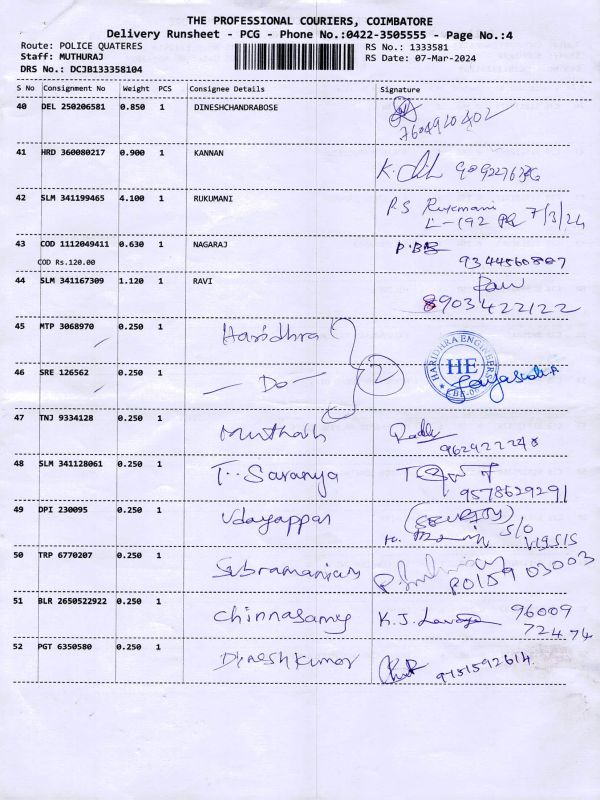 THE PROFESSIONAL COURIERS, COIMBATORE
Delivery Runsheet - PCG - Phone No.:0422-3505555 - Page No.:4
Route: POLICE QUATERES
RS No.: 1333581
Staff: MUTHURAJ
RS Date: 07-Mar-2024
DRS No.: DCJB133358104
S No Consignment No Weight PCS Consignee Details Signature
40 DEL 250206581 0.850 1 DINESHCHANDRABOSE
7604920402
41 HRD 360080217 0.900 1 KANNAN
K.
42 SLM 341199465 4.100 1 RUKUMANI P.S Rukmani
L-192 7/3/24
43 COD 1112049411 0.630 1 NAGARAJ
COD Rs.120.00 9344560807
44 SLM 341167309 1.120 1 RAVI Ravi
8903422122
45 MTP 3068970 0.250 1 Haridhra
46 SRE 126562 0.250 1 - Do - 2 HARIDHRA ENGINEERS HE
47 TNJ 9334128 0.250 1 Muthaih
9629222248
48 SLM 341128061 0.250 1 T. Saranya
9578629291
49 DPI 230095 0.250 1 Udayappan (SECURITY) S/O
50 TRP 6770207 0.250 1 Subramaniam
03003
51 BLR 2650522922 0.250 1 Chinnasamy K.J. 96009
72474
52 PGT 6350580 0.250 1 Dineshkumar 9151592614